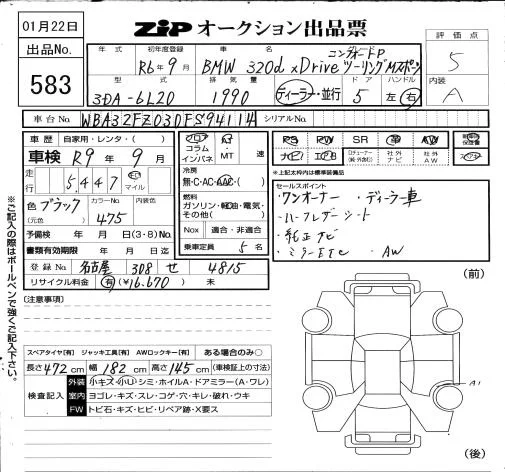 01月22日
出品No.
583
ZIP オークション出品票
評価点
5
内装
A
年式 初年度登録 車名
R6年9月 BMW 320d xDrive ツーリング Mスポーツ
コンフォートP
型式 排気量 ドア ハンドル
3DA-6L20 1990 ディーラー・並行 5 左・右
車台No. WBA32FZ030FS94114 シリアルNo.
車歴 自家用・レンタ・( )
車検 R9年9月
走行 5,447 km マイル
色 ブラック カラーNo. 475 内装色
(元色)
予備検 年 月 日(3・8)No.
書類有効期限 年 月 日迄
登録No. 名古屋 308 せ 4815
リサイクル料金 有(¥16,670) 未
フロア AT
コラム
インパネ ・MT 速
冷房
無・C・AC・AAC・( )
燃料
ガソリン・軽油・電気・
その他( )
Nox 適合・非適合
乗車定員 5名
PS PW SR 革 AW
ナビ エアB 社外ナビ 社外AW
※上記太枠内は標準装備品
セールスポイント
・ワンオーナー ・ディーラー車
・ハーフレザーシート
・純正ナビ
・ミラーETC ・AW
(注意事項)
(前)
A1
(後)
スペアタイヤ[有] ジャッキ工具[有] AWロックキー[有] ある場合のみ○
長さ472cm 幅182cm 高さ145cm (車検証上の寸法)
検査記入
外装 小キズ・小U・シミ・ホイルA・ドアミラー(A・ワレ)
室内 ヨゴレ・キズ・スレ・コゲ・穴・キレ・破れ・ウキ
FW トビ石・キズ・ヒビ・リペア跡・X要ス
※ご記入の際はボールペンで強くご記入下さい。